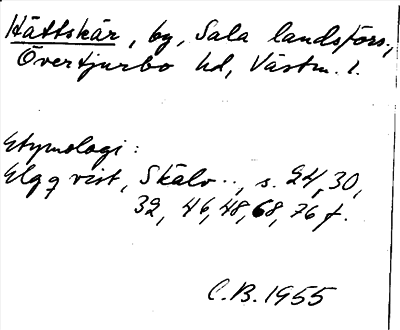 Hättskär, by, Sala landsförs.,
Övertjurbo hd, Västm. l.
Etymologi:
Elgqvist, Skälv.., s. 24, 30,
32, 46, 48, 68, 76 f.
C.B. 1955